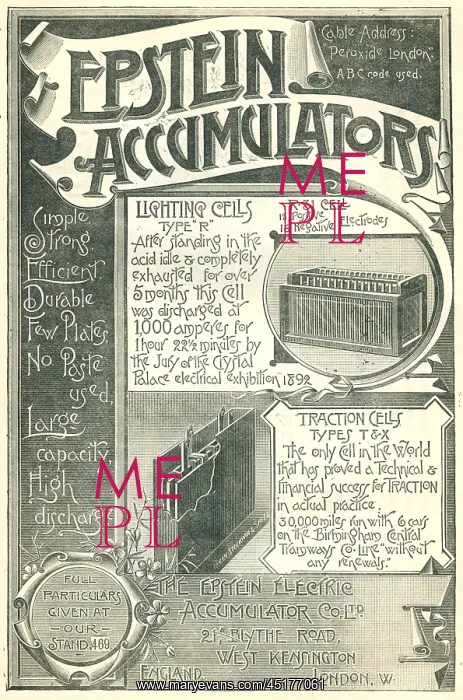 EPSTEIN
ACCUMULATORS
Cable Address:
"Peroxide London".
A B C code used.
Simple
Strong
Efficient
Durable
Few Plates
No Paste
used,
Large
capacity
High
discharge
LIGHTING CELLS
TYPE "R"
After standing in the
acid idle & completely
exhausted for over
5 months this Cell
was discharged at
1,000 amperes for
1 hour 22½ minutes by
the Jury of the Crystal
Palace electrical exhibition 1892
Positive
Negative Electrodes
TRACTION CELLS
TYPES T & X
The only Cell in the World
that has proved a Technical &
financial success for TRACTION
in actual practice
30,000 miles run with 6 cars
on the Birmingham Central
Tramways Co. Line "without
any renewals."
FULL
PARTICULARS
GIVEN AT
— OUR —
STAND. 469
THE EPSTEIN ELECTRIC
ACCUMULATOR Co. LTD.
21A BLYTHE ROAD,
WEST KENSINGTON
ENGLAND. LONDON, W.
ME
PL
ME
PL
www.maryevans.com/45177061